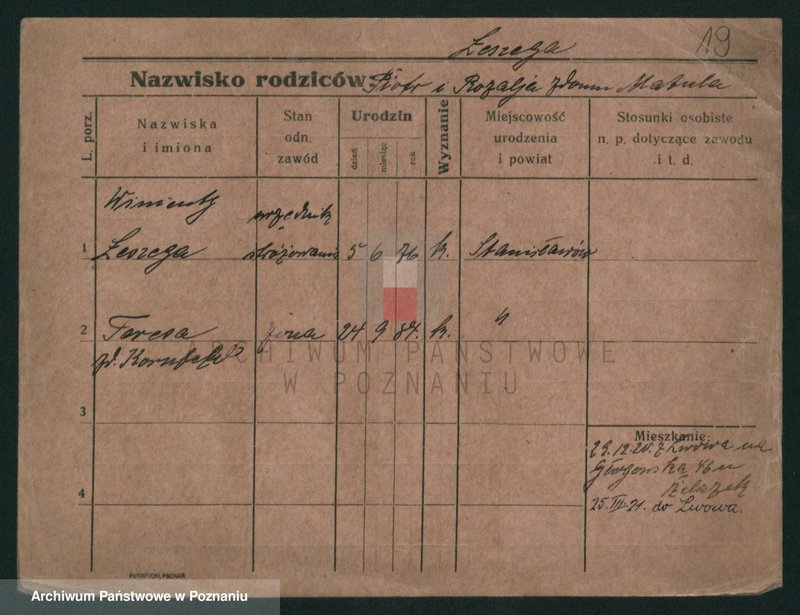 19
Nazwisko rodziców: Piotr i Rozalja z domu Matula
L. porz.
Nazwiska
i imiona
Stan
odn.
zawód
Urodzin
dzień
miesiąc
rok
Wyznanie
Miejscowość
urodzenia
i powiat
Stosunki osobiste
n. p. dotyczące zawodu
i t. d.
urzędnik
1
5 6 76 k. Stanisławów
2 Teresa żona 24 9 84. k. "
zd.
ARCHIWUM PAŃSTWOWE
W POZNANIU
3
4
Mieszkanie:
29.12.20. z Lwowa na
Głogowską
25.III.21. do Lwowa.
PUTIATYCKI, POZNAŃ
Archiwum Państwowe w Poznaniu